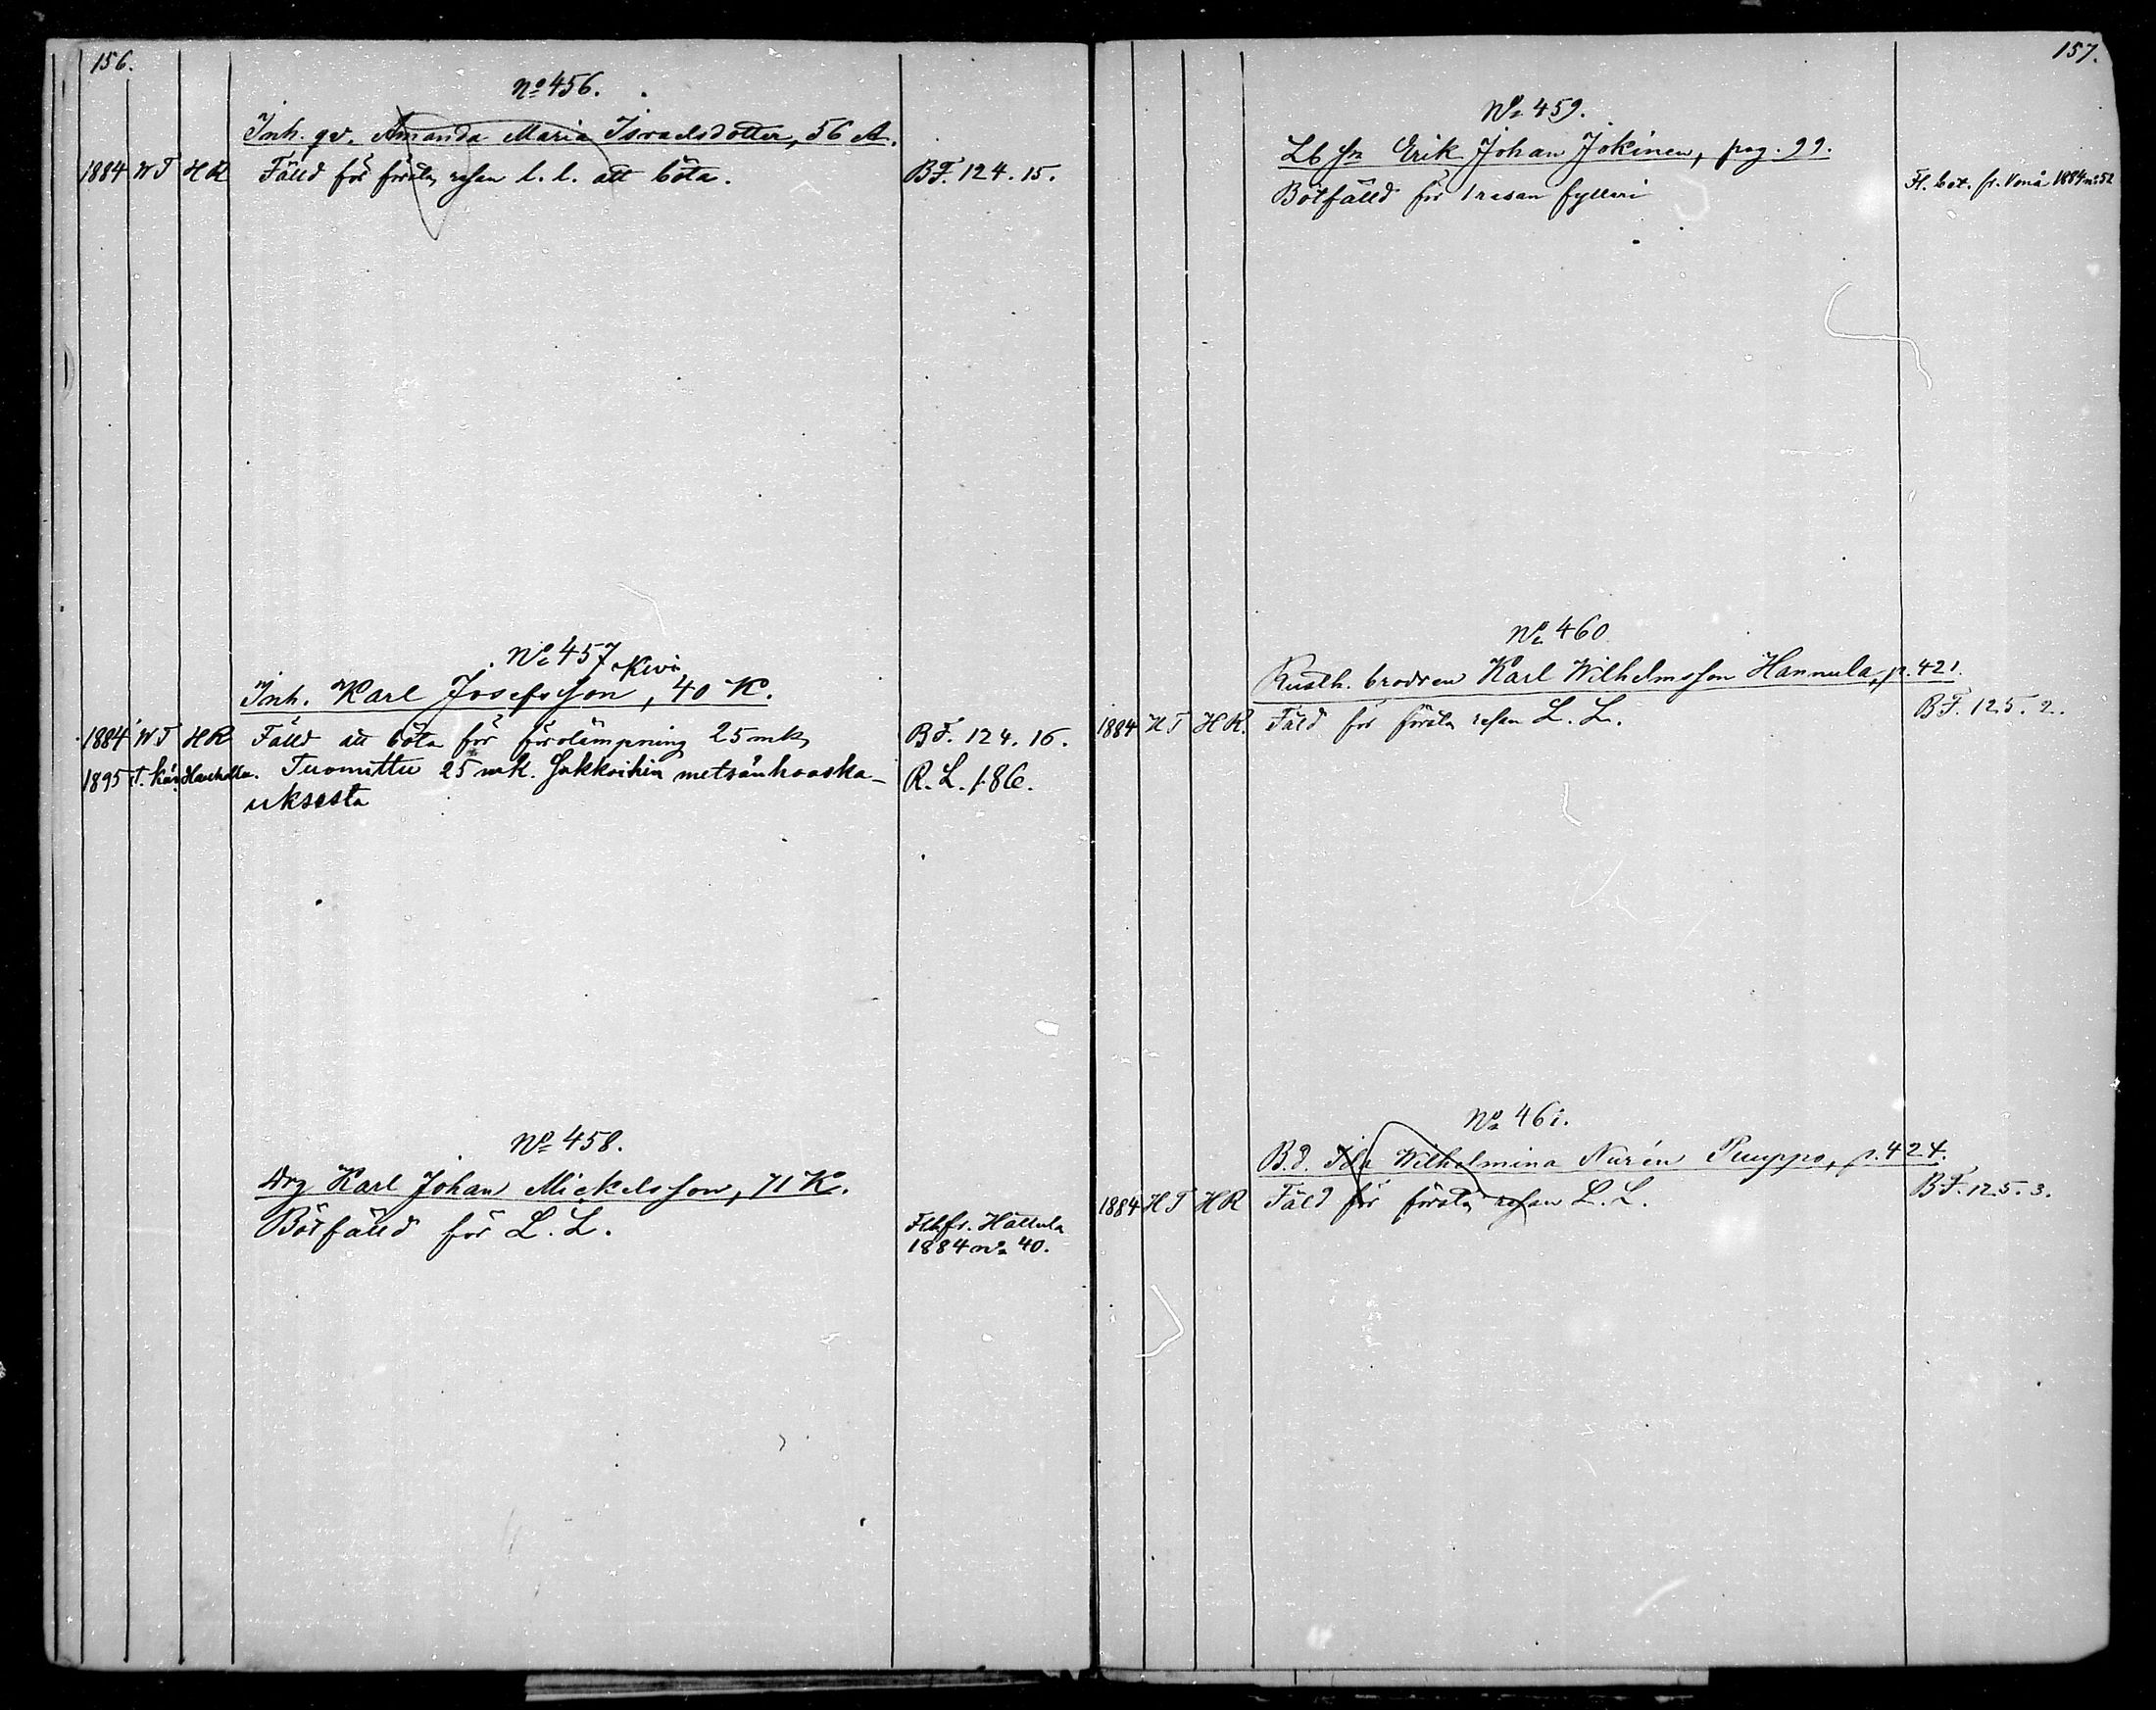 156.
No 456.
Inh. qv. Amanda Maria Isrraelsdotter, 56 A.
1884 WT HR Fälld för första resan l. l. att böta. BF. 124. 15.
No 457
Kivi
Inh. Karl Josefsson, 40 K.
1884 WT HR Fälld att böta för förolämpning 25 mk BF. 124. 16.
1895 t. kär. Hauholla. Tuomittu 25 mk. sakkoihin metsänhaaska- R. L. 186.
uksesta
No 458.
Drg Karl Johan Mickelsson, 71 K.
Bötfälld för L. L. Flb fr. Hattula
1884 No 40.
157.
No 459.
Lb sn Erik Johan Jokinen, pag. 99.
Bötfälld för 1 resan fylleri Fl. bet. fr. Vonå 1884 no 52
No 460
Rusth. brodren Karl Wilhelmsson Hannula, p. 421.
1884 HT HR. Fäld för första resan L. L. BF. 125. 2.
No 461.
B. d. Ida Wilhelmina Nurén Puuppo, p. 424.
1884 HT HR Fäld för första resan L. L. BF. 125. 3.